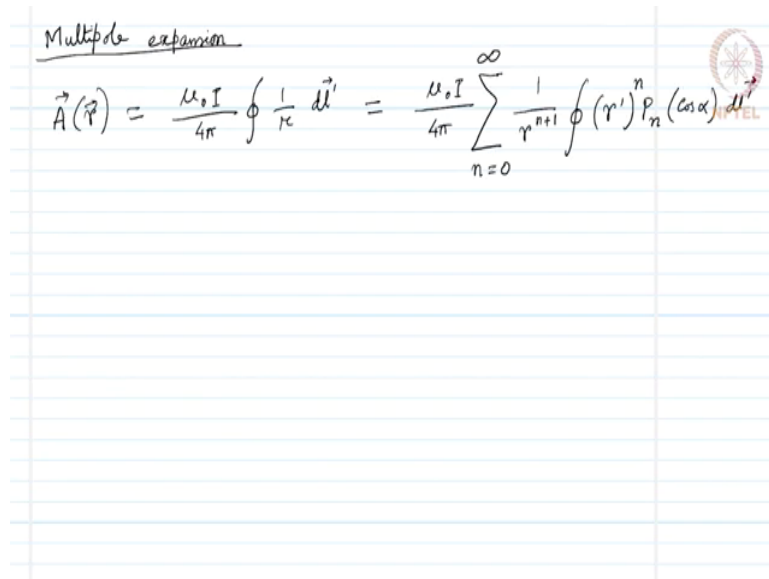 Multipole expansion
$\vec{A}(\vec{r}) = \frac{\mu_0 I}{4\pi} \oint \frac{1}{r} d\vec{l}' = \frac{\mu_0 I}{4\pi} \sum_{n=0}^{\infty} \frac{1}{r^{n+1}} \oint (r')^n P_n (\cos\alpha) d\vec{l}'$
NPTEL